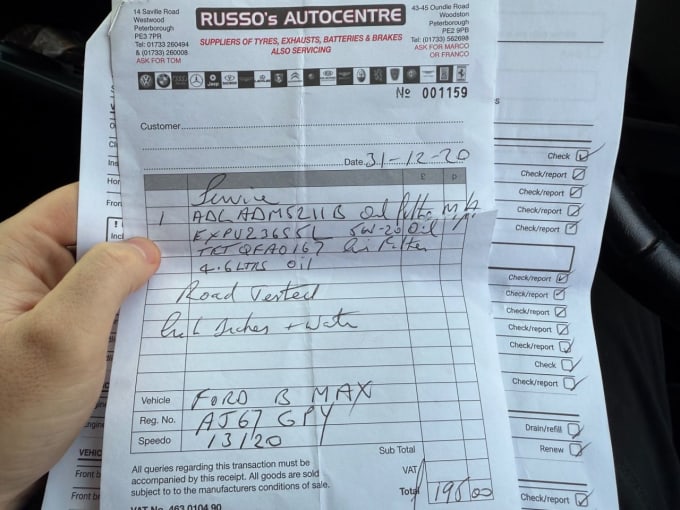 14 Saville Road
Westwood
Peterborough
PE3 7PR
Tel: 01733 260494
& (01733) 260008
ASK FOR TOM
RUSSO's AUTOCENTRE
SUPPLIERS OF TYRES, EXHAUSTS, BATTERIES & BRAKES
ALSO SERVICING
43-45 Oundle Road
Woodston
Peterborough
PE2 9PB
Tel: (01733) 562698
ASK FOR MARCO
OR FRANCO
No 001159
Customer
Date 31-12-20
£ p
Service
1 ADL ADM5211B Oil Filter
5W-20 Oil
TRT QFA0167 Air Filter
4.6 LTRS Oil
Road Tested
+ Water
Vehicle FORD B MAX
Reg. No. AJ67 GPY
Speedo 13120
Sub Total
VAT
Total 195 00
All queries regarding this transaction must be
accompanied by this receipt. All goods are sold
subject to to the manufacturers conditions of sale.
VAT No. 463 0104 90
Check
Check/report
Check/report
Check/report
Check/report
Check/report
Check/report
Check/report
Check/report
Check/report
Check
Check/report
Drain/refill
Renew
Check/report
VEHIC
Front b
Front b